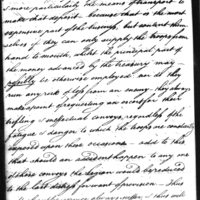 & more particularly the means of transport to
make that deposit. Because that is the most
expensive part of the through, but content them
selves if they can only supply the troops from
hand to mouth, whilst the principal part of
the money advanced by the treasury may
possibly be otherwise employed nor do they
run any risk of loss from an enemy, they always
make a point of requesting an escort for their
trifling & ineffectual convoys, regardless of the
fatigue & danger to which the troops are constantly
exposed upon these occasions - add to this
that should an accident happen to any one
of these convoys the legion would be reduced
to the last distress for want of provision - thus